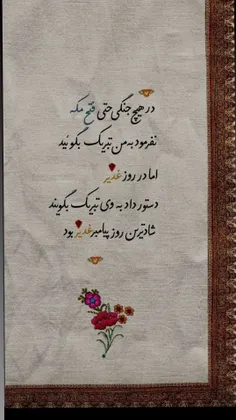 در هیچ جنگی حتی فتح مکه
نفرمود به من تبریک بگوئید
اما در روز غدیر
دستور داد به وی تبریک بگویند
شادترین روز پیامبر غدیر بود